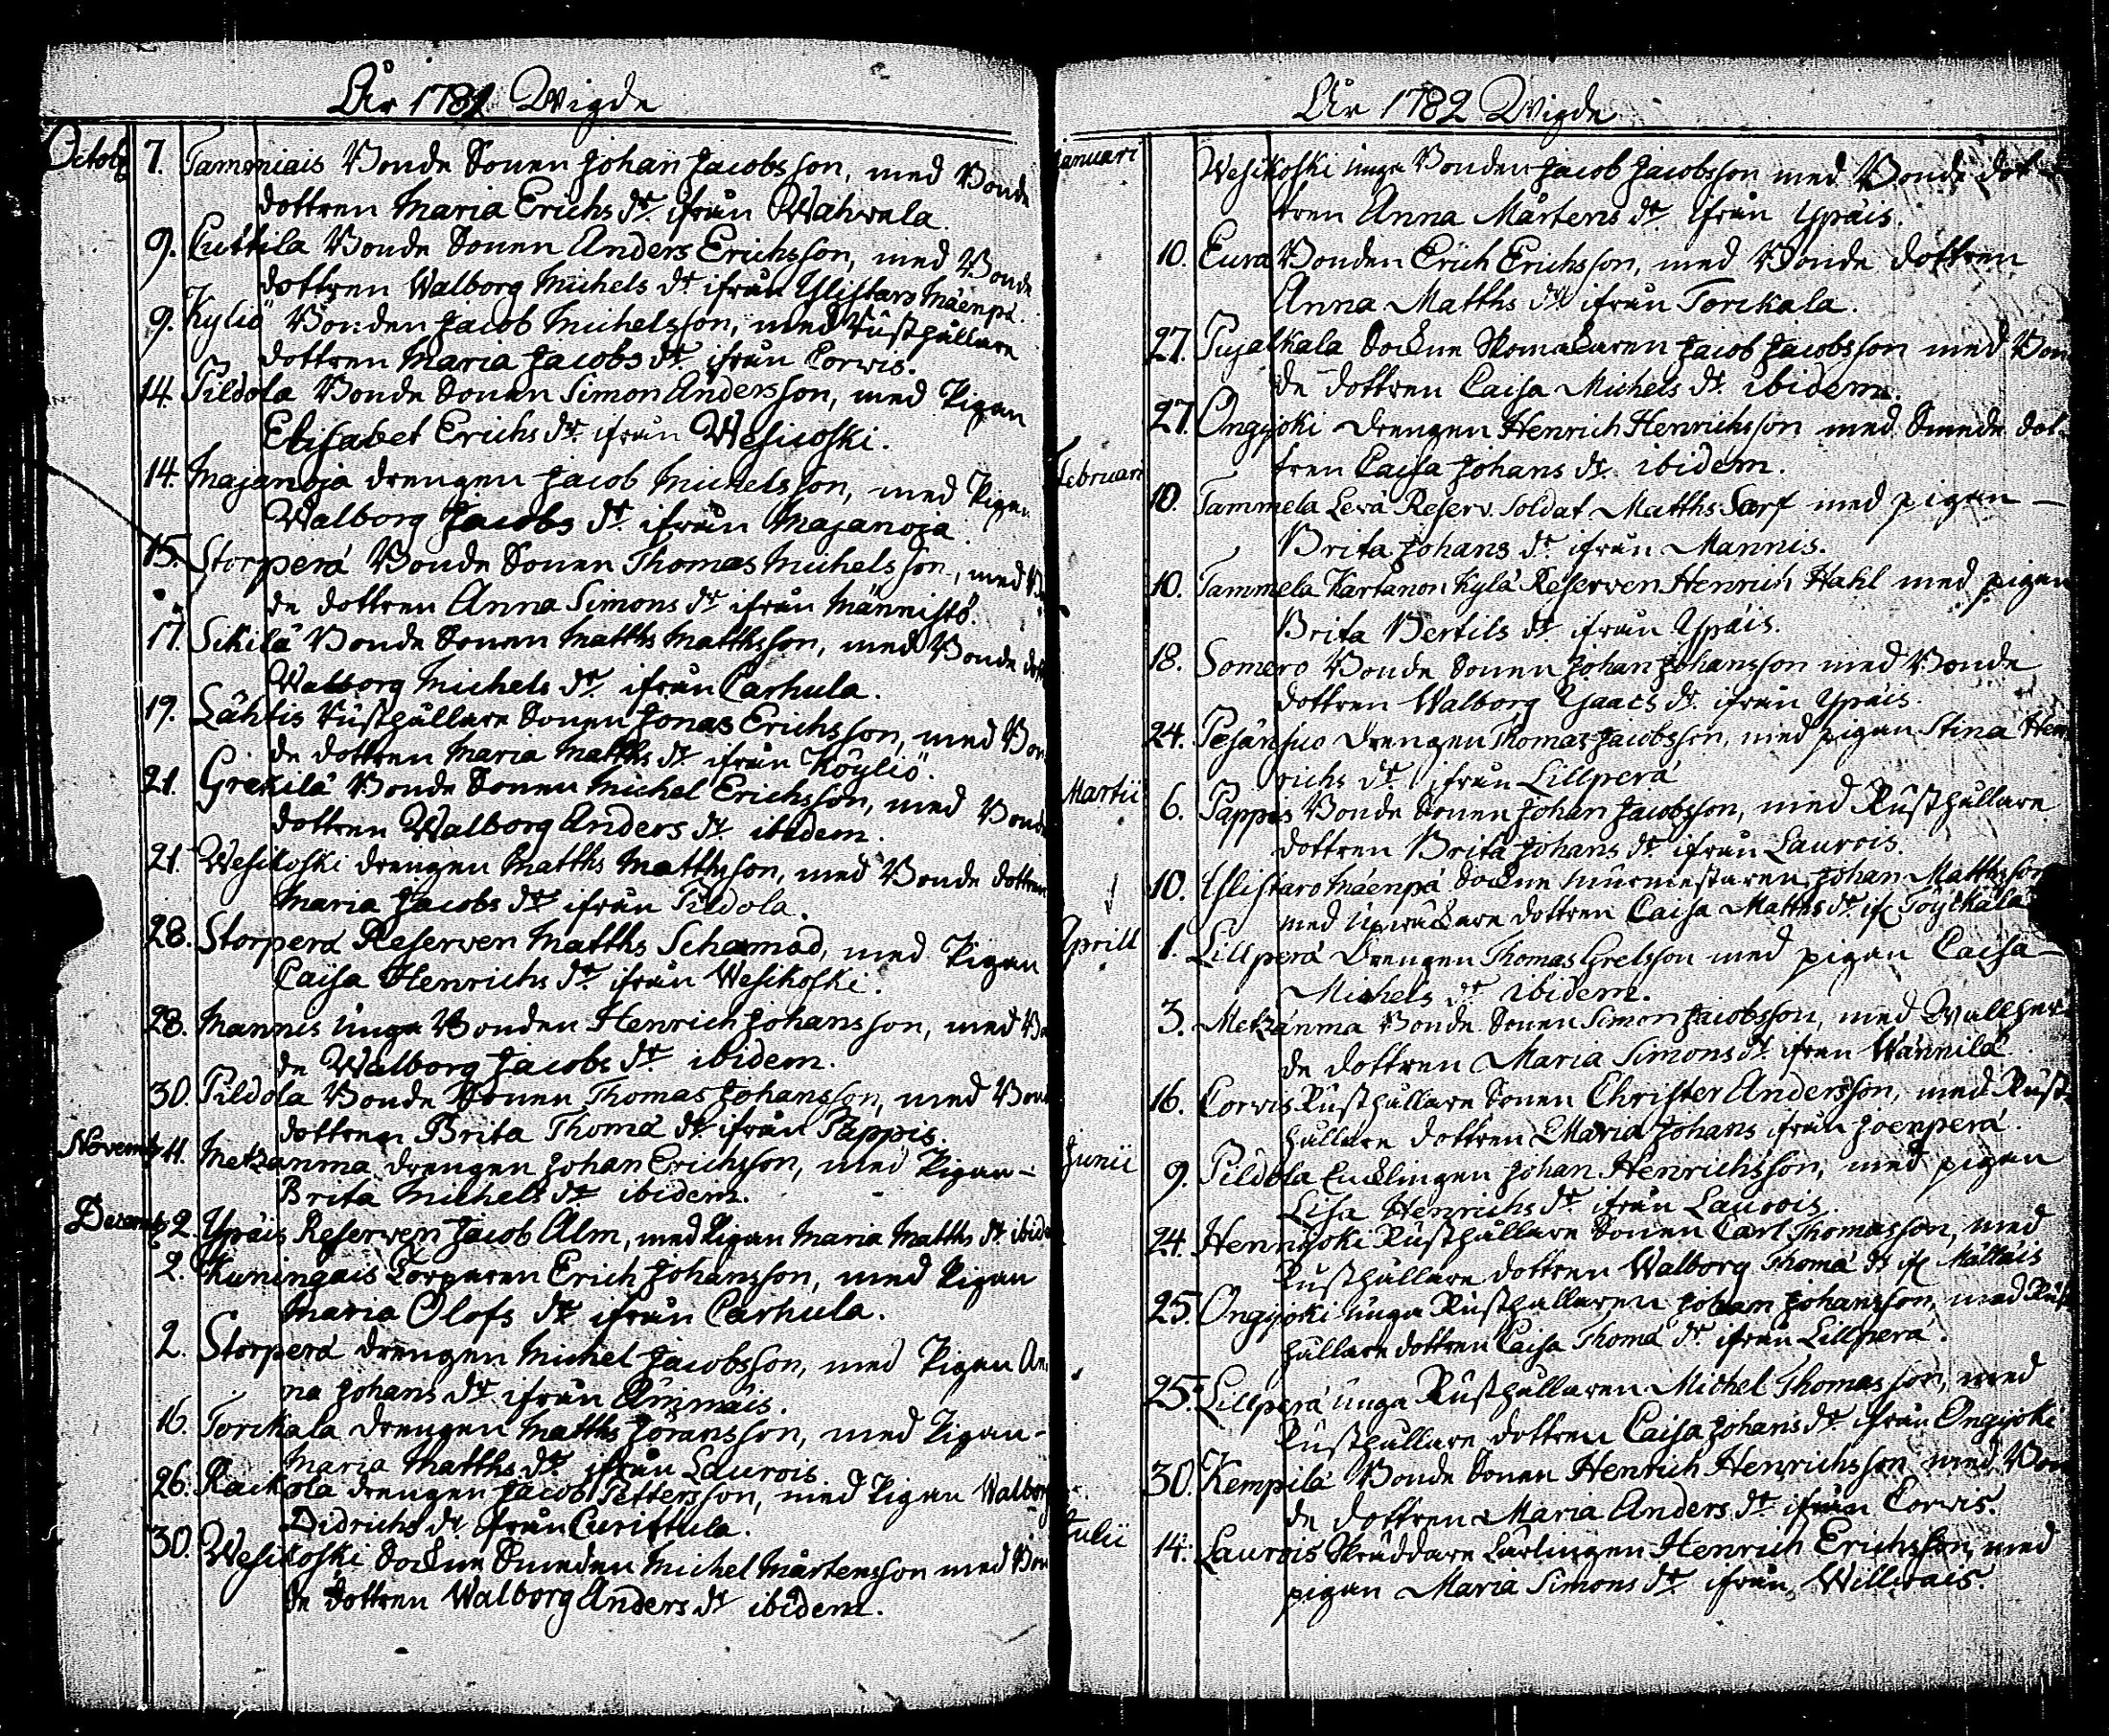 År 1781 Wigde
Octob. 7. Tammiais Bonde Sonen Johan Jacobsson, med Bonde
dottren Maria Erichs dr ifrån Wahvala.
9. Cuttila Bonde Sonen Anders Erichsson, med Bonde
dottren Walborg Michels dr ifrån Ylistaro Mäenpä.
9. Kyliö Bonden Jacob Michelsson, med Rusthållare
dottren Maria Jacobs dr ifrån Corvis.
14. Pildola Bonde Sonen Simon Andersson, med Pigan
Elisabet Erichs dr ifrån Wesicoski.
14. Majanoja drengen Jacob Michelsson, med Pigan
Walborg Jacobs dr ifrån Majanoja.
15. Storperä Bonde Sonen Thomas Michelsson, med Bon
de dottren Anna Simons dr ifrån Männistö.
17. Sikilä Bonde Sonen Matths Matthsson, med Bonde dott
Walborg Michels dr ifrån Carhula.
19. Lähtis Rusthållare Sonen Jonas Erichsson, med Bon
de dottren Maria Matths dr ifrån Köyliö.
21. Grekilä Bonde Sonen Michel Erichsson, med Bonde
dottren Walborg Anders dr ibidem.
21. Wesikoski drengen Matths Matthsson, med Bonde dottren
Maria Jacobs dr ifrån Pildola.
28. Storperä Reserven Matths Schamad, med Pigan
Caisa Henrichs dr ifrån Wesikoski.
28. Mannis unga Bonden Henrich Johansson, med Bon
de Walborg Jacobs dr ibidem.
30. Pildola Bonde Sonen Thomas Johansson, med Bonde
dottren Brita Thomä dr ifrån Pappis.
Novemb. 11. Metzänma drengen Johan Erichsson, med Pigan –
Brita Michels dr ibidem.
Decemb. 2. Ypäis Reserven Jacob Alm, med Pigan Maria Matths dr ibidem
2. Kuningais Torparen Erich Johansson, med Pigan
Maria Olofs dr ifrån Carhula.
2. Storperä drengen Michel Jacobsson, med Pigan An
na Johans dr ifrån Ammäis.
16. Torckala drengen Matths Jöransson, med Pigan –
Maria Matths dr ifrån Laurois.
26. Rackola drengen Jacob Pettersson, med Pigan Walborg
Didrichs dr ifrån Curittula.
30. Wesikoski Sockne Smeden Michel Mårtensson med Bon
de dottren Walborg Anders dr ibidem.
År 1782 Wigde
Januari Wesikoski unga Bonden Jacob Jacobsson med Bonde dot
tren Anna Mårtens dr ifrån Ypäis.
10. Eura Bonden Erich Erichsson, med Bonde dottren
Anna Matths dr ifrån Torckala.
27. Pujalkala Sockne Skomakaren Jacob Jacobsson med Bon
de dottren Caisa Michels dr ibidem.
27. Ongijoki drengen Henrich Henrichsson med Smede dot
tren Caisa Johans dr ibidem.
Februari 10. Tammela Levä Reserv. Soldat Matths Sarf med pigan –
Brita Johans dr ifrån Mannis.
10. Tammela Kartanon Kylä Reserven Henrich Hahl med pigan
Brita Bertils dr ifrån Ypäis.
18. Somero Bonde Sonen Johan Johansson med Bonde
dottren Walborg Isaacs dr ifrån Ypäis.
24. Pesänsuo drengen Thomas Jacobsson, med pigan Stina Hen
richs dr ifrån Lillperä
Martii 6. Pappis Bonde Sonen Johan Jacobsson, med Rusthållare
dottren Brita Johans dr ifrån Laurois.
10. Ylistaro Mäenpä Sockne murmestaren Johan Matthsson
med dottren Caisa Matths dr if Töyckälä
Aprill 1. Lillperä Drengen Thomas Grelsson med pigan Caisa –
Michels dr ibidem.
3. Metzänma Bonde Sonen Simon Jacobsson, med Wallher
de dottren Maria Simons dr ifrån Wännilä
16. Corvis Rusthållare Sonen Christer Andersson, med Rust
hållare dottren Maria Johans ifrån Joenperä.
Junii 9. Pildola Enclingen Johan Henrichsson, med pigan
Lisa Henrichs dr ifrån Laurois.
24. Hennijoki Rusthållare Sonen Carl Thomasson, med
Rusthållare dottren Walborg Thomä dr if Mältäis
25. Ongijoki unga Rusthållaren Johan Johansson, med Rust
hållare dottren Caisa Thomä dr ifrån Lillperä.
25. Lillperä unga Rusthållaren Michel Thomasson, med
Rusthållare dottren Caisa Johans dr ifrån Ongijoki
30. Kempilä Bonde Sonen Henrich Henrichsson med Bon
de dottren Maria Anders dr ifrån Corvis.
Julii 14. Laurois Skräddare Lärlingen Henrich Erichsson, med
pigan Maria Simons dr ifrån Willivais.